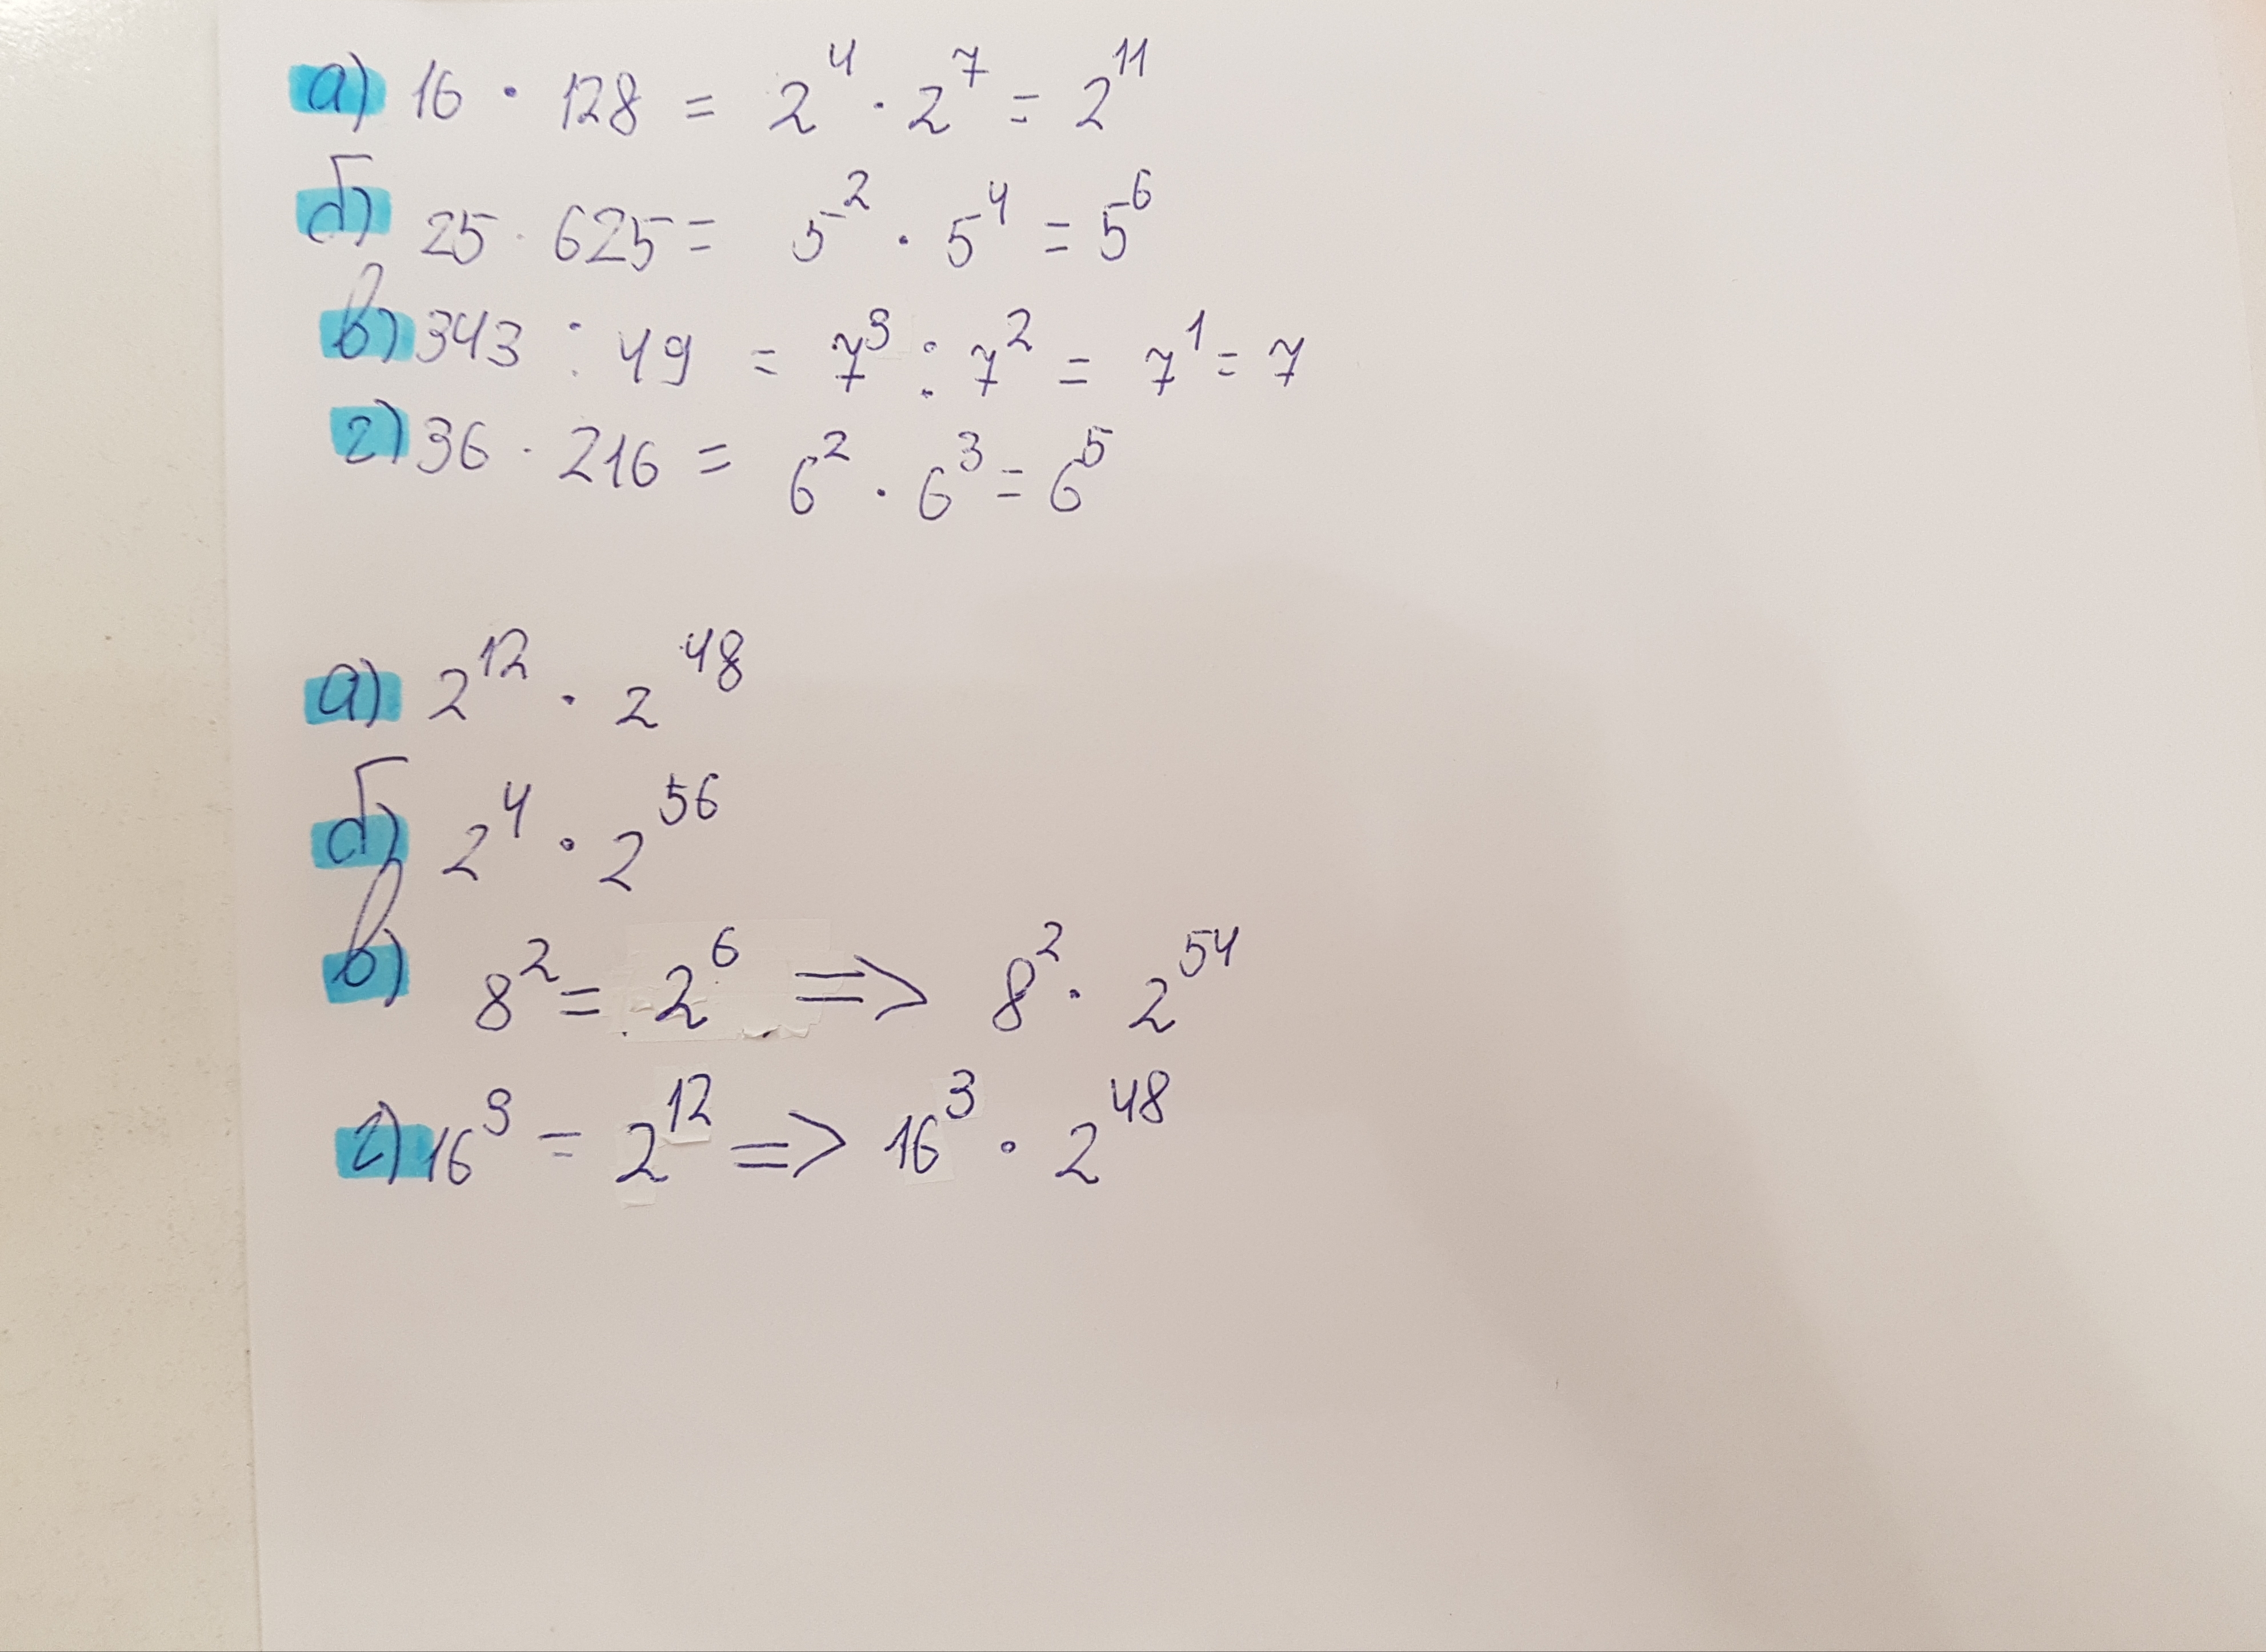 а) 16 · 128 = 2⁴ · 2⁷ = 2¹¹
б) 25 · 625 = 5² · 5⁴ = 5⁶
в) 343 : 49 = 7³ : 7² = 7¹ = 7
г) 36 · 216 = 6² · 6³ = 6⁵
а) 2¹² · 2⁴⁸
б) 2⁴ · 2⁵⁶
в) 8² = 2⁶ => 8² · 2⁵⁴
г) 16³ = 2¹² => 16³ · 2⁴⁸